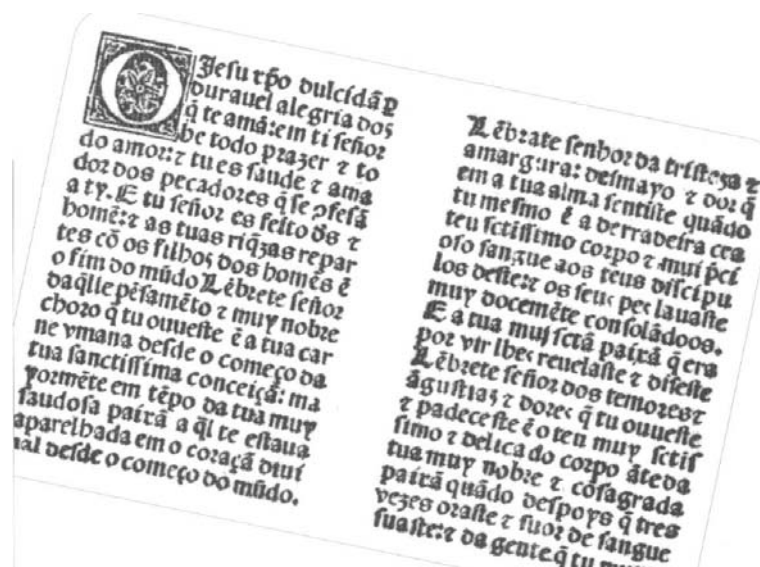 O Jesu xp̃o dulcidã ꝑ
durauel alegria dos
q̃ te amã: em ti señor
be todo prazer ⁊ to
do amor: ⁊ tu es saude ⁊ ama
dor dos pecadores q̃ se ↄfesã
a ty. E tu señor es feito ds̃ ⁊
homẽ: ⁊ as tuas riq̃zas repar
tes cõ os filhos dos homẽs ẽ
o fim do mũdo Lẽbrete señor
daq̃lle pẽsamẽto ⁊ muy nobre
choro q̃ tu ouueste ẽ a tua car
ne vmana desde o começo da
tua sanctissima conceiçã: ma
yormẽte em tẽpo da tua muy
saudosa paixã a q̃l te estaua
aparelhada em o coraçã diui
nal desde o começo do mũdo.
Lẽbrate senhor da tristeza ⁊
amargura: desmayo ⁊ dor q̃
em a tua alma sentiste quãdo
tu mesmo ẽ a derradeira cea
teu sctissimo corpo ⁊ mui p̃ci
oso sangue aos teus discipu
los deste: ⁊ os seus pes lauaste
muy docemẽte consolãdoos.
E a tua mui sctã paixã q̃ era
por vir lhes reuelaste ⁊ diseste
Lẽbrete señor dos temores ⁊
ãgustias ⁊ dores q̃ tu ouueste
⁊ padeceste ẽ o teu muy sctis
simo ⁊ delicado corpo ãte da
tua muy nobre ⁊ cõsagrada
paixã quãdo despoys q̃ tres
vezes oraste ⁊ suor de sangue
suaste: ⁊ da gente q̃ tu